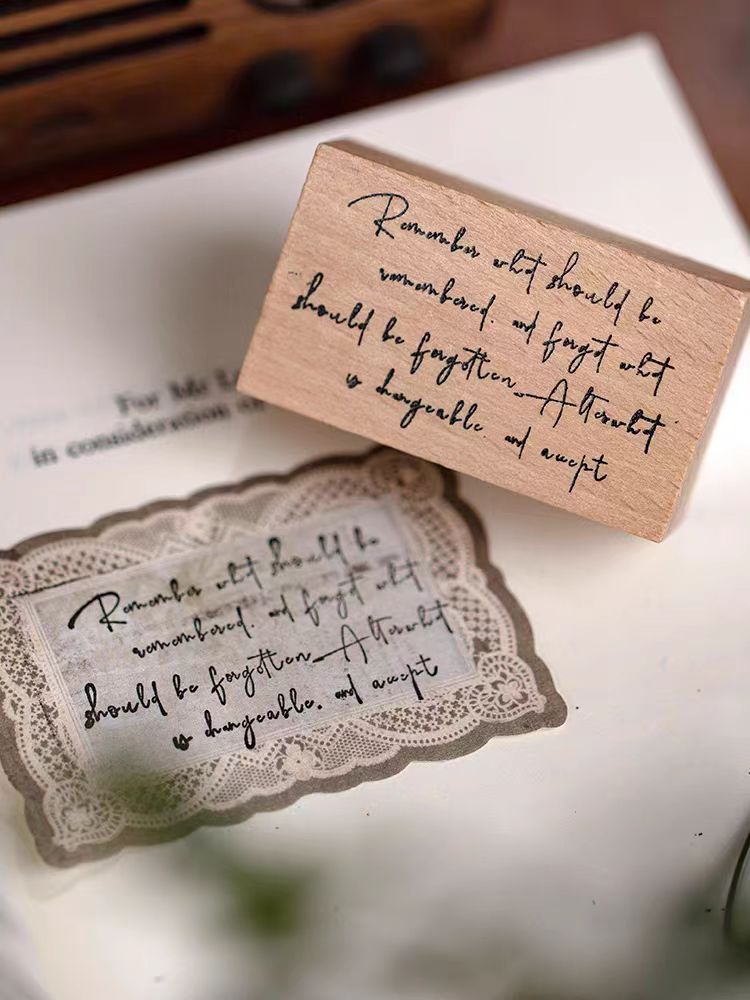 Remember what should be
remembered. and forgot what
should be forgotten_Alterwhat
is changeable. and accept
For Mc
in consideration
Remember what should be
remembered. and forgot what
should be forgotten_Alterwhat
is changeable. and accept